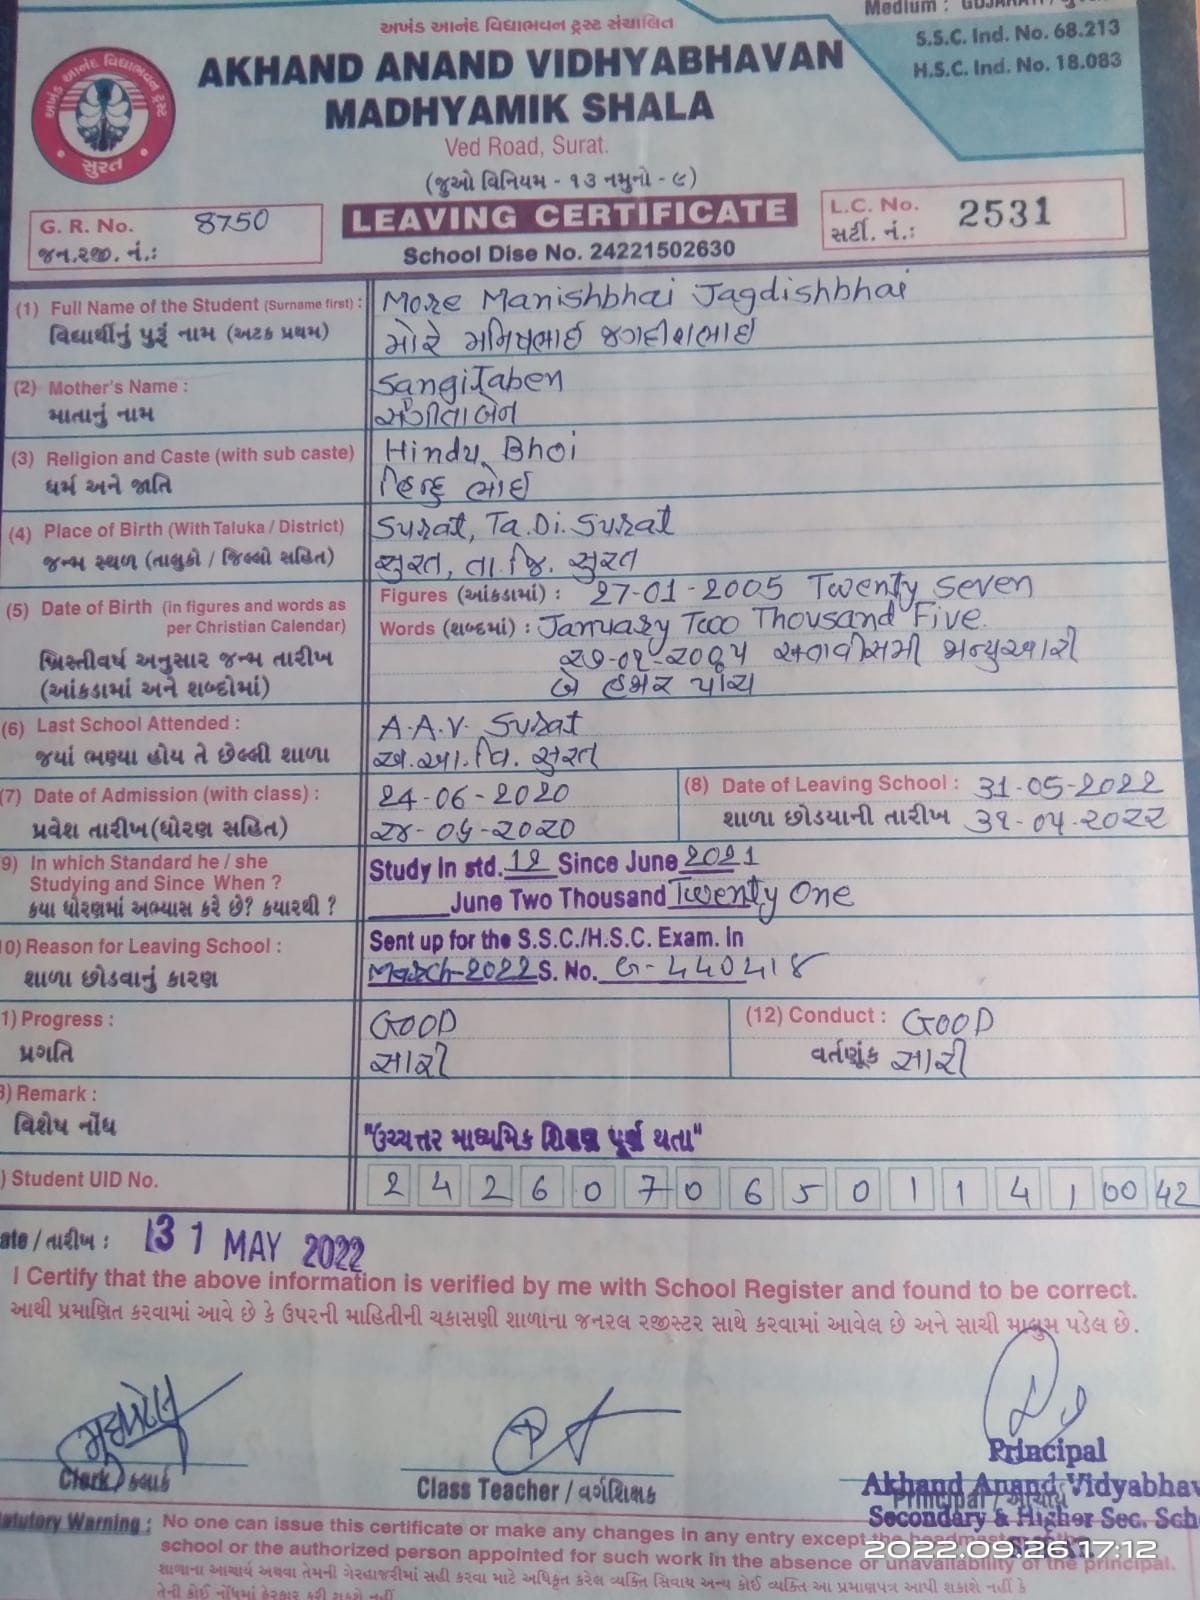 અખંડ આનંદ વિદ્યાભવન ટ્રસ્ટ સંચાલિત
Medium : GUJARATI /
S.S.C. Ind. No. 68.213
H.S.C. Ind. No. 18.083
અખંડ આનંદ વિદ્યાભવન ટ્રસ્ટ
સુરત
AKHAND ANAND VIDHYABHAVAN
MADHYAMIK SHALA
Ved Road, Surat.
(જુઓ વિનિયમ - ૧૩ નમુનો - ૯)
G. R. No. 8750
જન.રજી. નં.:
LEAVING CERTIFICATE
School Dise No. 24221502630
L.C. No. 2531
સર્ટી. નં.:
(1) Full Name of the Student (Surname first) : More Manishbhai Jagdishbhai
વિદ્યાર્થીનું પુરૂં નામ (અટક પ્રથમ) મોરે મનિષભાઈ જગદીશભાઈ
(2) Mother's Name : Sangitaben
માતાનું નામ સંગીતાબેન
(3) Religion and Caste (with sub caste) Hindu Bhoi
ધર્મ અને જાતિ હિન્દુ ભોઈ
(4) Place of Birth (With Taluka / District) Surat, Ta.Di. Surat
જન્મ સ્થળ (તાલુકો / જિલ્લો સહિત) સુરત, તા.જિ. સુરત
(5) Date of Birth (in figures and words as per Christian Calendar)
Figures (આંકડામાં) : 27-01-2005 Twenty Seven
Words (શબ્દમાં) : January Two Thousand Five.
ખ્રિસ્તીવર્ષ અનુસાર જન્મ તારીખ ૨૭-૦૧-૨૦૦૫ સત્તાવીસમી જાન્યુઆરી
(આંકડામાં અને શબ્દોમાં) બે હજાર પાંચ
(6) Last School Attended : A.A.V. Surat
જયાં ભણ્યા હોય તે છેલ્લી શાળા અ.આ.વિ. સુરત
(7) Date of Admission (with class) : 24-06-2020
(8) Date of Leaving School : 31-05-2022
પ્રવેશ તારીખ(ધોરણ સહિત) ૨૪-૦૬-૨૦૨૦
શાળા છોડયાની તારીખ ૩૧-૦૫-૨૦૨૨
9) In which Standard he / she
Studying and Since When ?
કયા ધોરણમાં અભ્યાસ કરે છે? કયારથી ?
Study in std. 12 Since June 2021
June Two Thousand Twenty One
0) Reason for Leaving School : Sent up for the S.S.C./H.S.C. Exam. In
શાળા છોડવાનું કારણ March-2022 S. No. G-440418
1) Progress : GOOD
(12) Conduct : GOOD
પ્રગતિ સારી
વર્તણૂંક સારી
) Remark :
વિશેષ નોંધ "ઉચ્ચત્તર માધ્યમિક શિક્ષણ પૂર્ણ થતા"
) Student UID No. 2 4 2 6 0 7 0 6 5 0 1 1 4 1 00 42
ate / તારીખ : 31 MAY 2022
I Certify that the above information is verified by me with School Register and found to be correct.
આથી પ્રમાણિત કરવામાં આવે છે કે ઉપરની માહિતીની ચકાસણી શાળાના જનરલ રજીસ્ટર સાથે કરવામાં આવેલ છે અને સાચી માલુમ પડેલ છે.
Clerk / કલાર્ક
Class Teacher / વર્ગશિક્ષક
Principal / આચાર્ય
Principal
Akhand Anand Vidyabhav
Secondary & Higher Sec. Scho
atutory Warning : No one can issue this certificate or make any changes in any entry except the headmaster of the
school or the authorized person appointed for such work in the absence or unavailability of the principal.
શાળાના આચાર્ય અથવા તેમની ગેરહાજરીમાં સહી કરવા માટે અધિકૃત કરેલ વ્યક્તિ સિવાય અન્ય કોઈ વ્યક્તિ આ પ્રમાણપત્ર આપી શકાશે નહીં કે
તેની કોઈ નોંધમાં ફેરફાર કરી શકાશે નહીં
2022.09.26 17:12